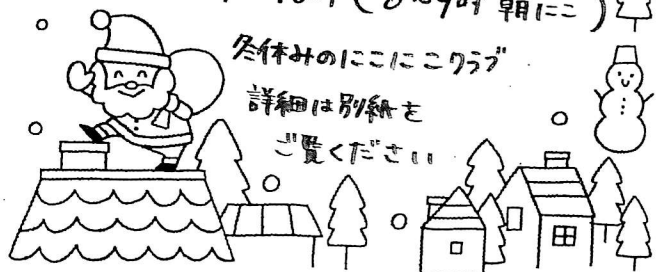 (8時〜9時 朝にこ)
冬休みのにこにこクラブ
詳細は別紙を
ご覧ください